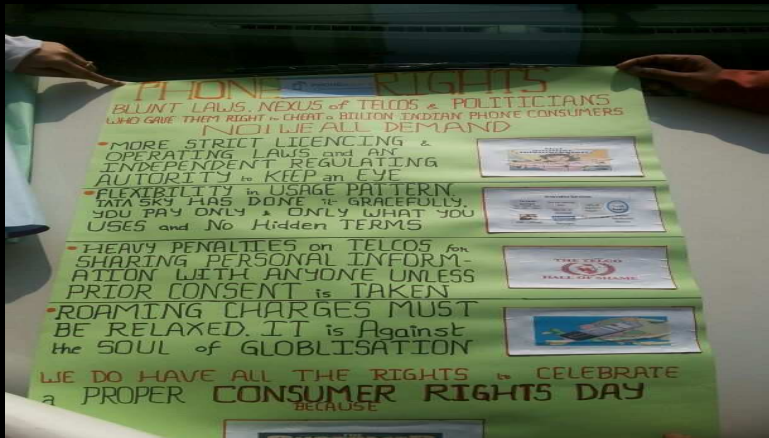 PHONE RIGHTS
BLUNT LAWS, NEXUS of TELCOS & POLITICIANS
WHO GAVE THEM RIGHT to CHEAT a BILLION INDIAN PHONE CONSUMERS
NO! WE ALL DEMAND
• MORE STRICT LICENCING &
OPERATING LAWS and AN
INDEPENDENT REGULATING
AUTHORITY to KEEP an EYE
• FLEXIBILITY in USAGE PATTERN.
TATA SKY HAS DONE it GRACEFULLY.
YOU PAY ONLY & ONLY WHAT YOU
USES and NO Hidden TERMS
• HEAVY PENALTIES on TELCOS for
SHARING PERSONAL INFORM-
ATION WITH ANYONE UNLESS
PRIOR CONSENT is TAKEN
THE TELCO
HALL OF SHAME
• ROAMING CHARGES MUST
BE RELAXED. IT is Against
the SOUL of GLOBLISATION
WE DO HAVE ALL THE RIGHTS to CELEBRATE
a PROPER CONSUMER RIGHTS DAY
BECAUSE